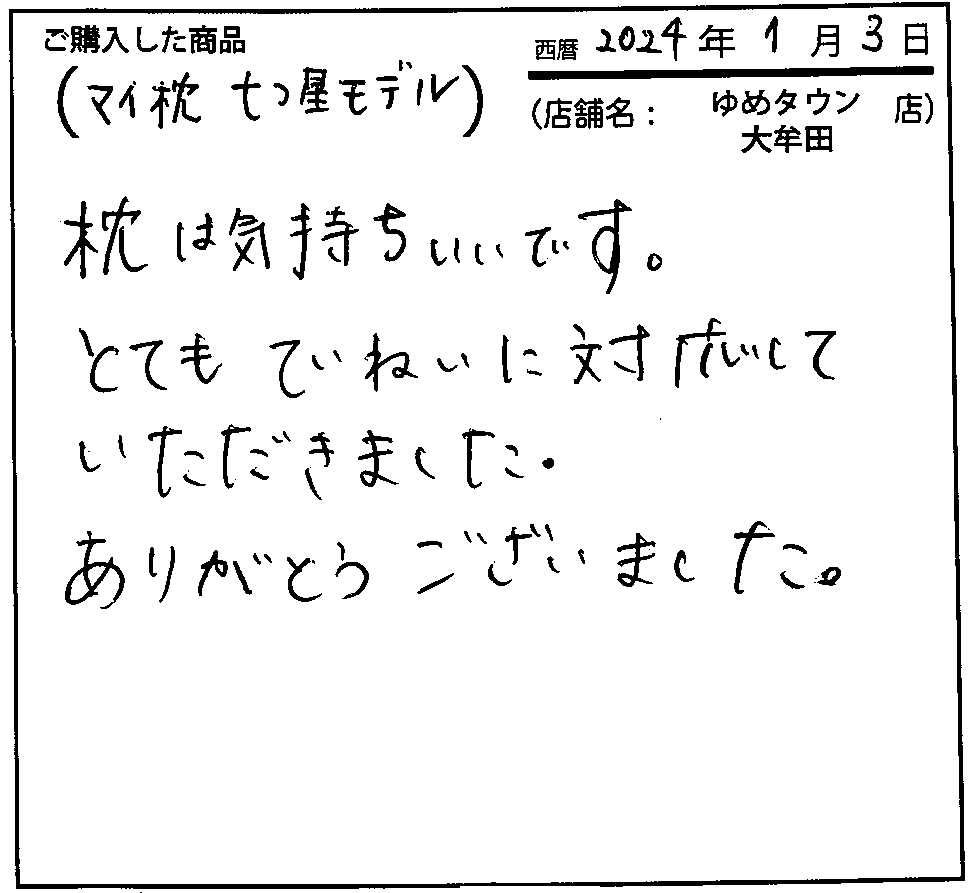 ご購入した商品
(マイ枕 七つ星モデル)
西暦 2024年 1月 3日
(店舗名： ゆめタウン 店)
大牟田
枕は気持ちいいです。
とても ていねいに 対応して
いただきました.
ありがとう ございました。